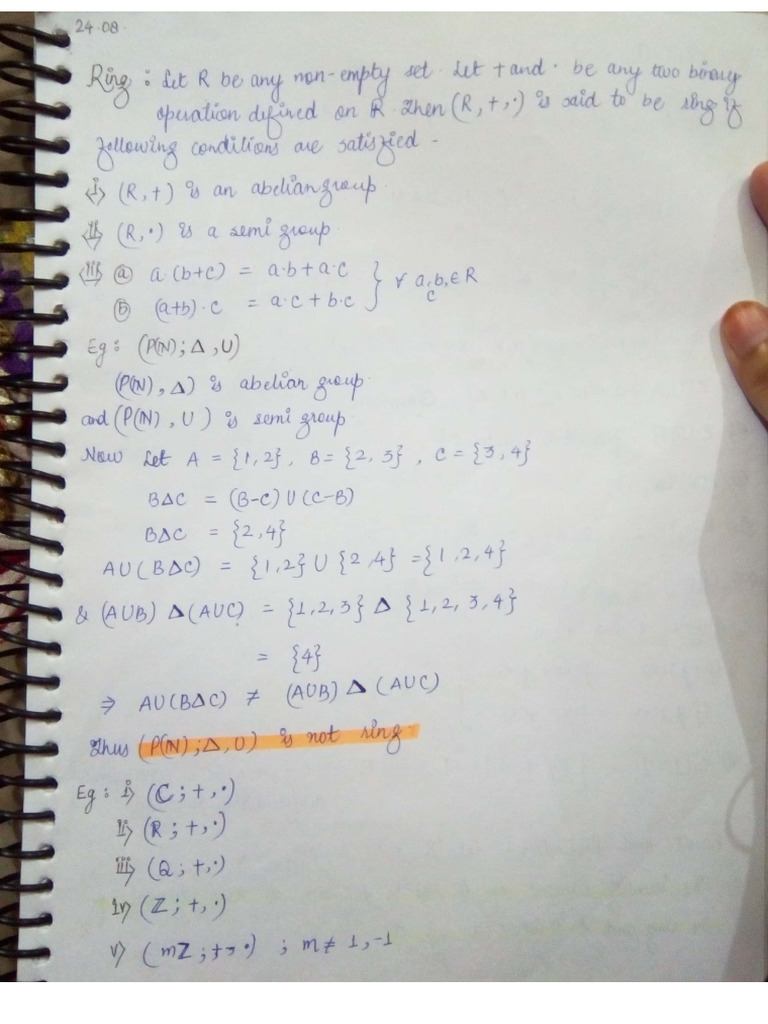 24.08.
Ring : Let R be any non-empty set. Let + and · be any two binary
operation defined on R. Then (R, +, ·) is said to be ring if
following conditions are satisfied -
i> (R, +) is an abelian group.
ii> (R, ·) is a semi group.
iii> ⓐ a·(b+c) = a·b + a·c } ∀ a, b, c ∈ R
ⓑ (a+b)·c = a·c + b·c
Eg: (P(N); Δ, U)
(P(N), Δ) is abelian group.
and (P(N), U) is semi group.
Now Let A = {1, 2}, B = {2, 3}, C = {3, 4}
BΔC = (B-C) U (C-B)
BΔC = {2, 4}
AU(BΔC) = {1, 2} U {2, 4} = {1, 2, 4}
& (AUB) Δ (AUC) = {1, 2, 3} Δ {1, 2, 3, 4}
= {4}
⇒ AU(BΔC) ≠ (AUB) Δ (AUC)
Thus (P(N); Δ, U) is not ring.
Eg: i> (C; +, ·)
ii> (R; +, ·)
iii> (Q; +, ·)
iv> (Z; +, ·)
v> (mZ; +, ·) ; m ≠ 1, -1